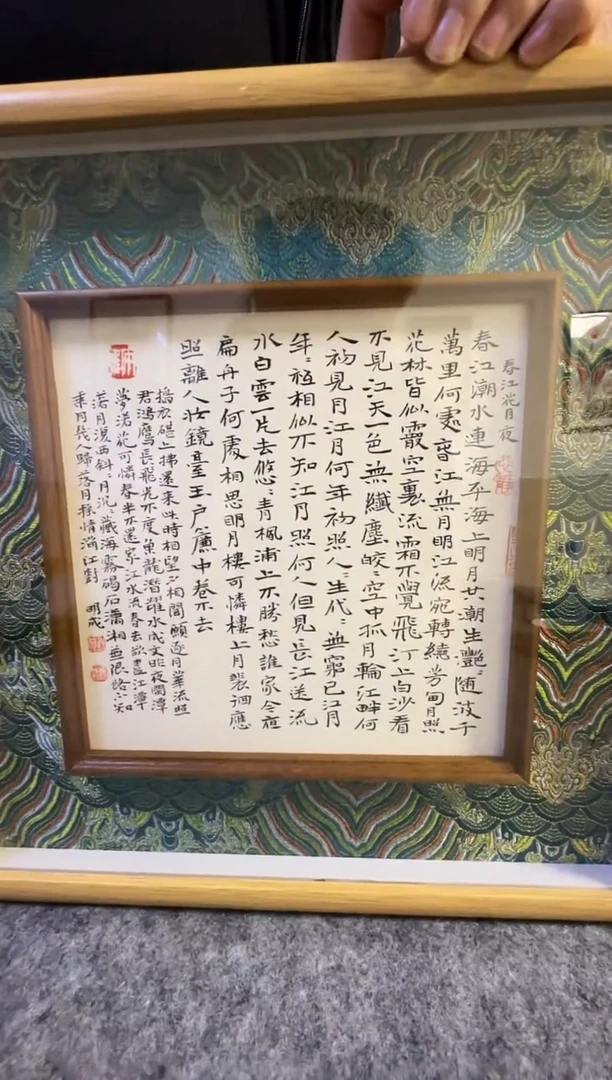 春江花月夜
春江潮水連海平海上明月共潮生艷〻随波千
萬里何處春江無月明江流宛轉繞芳甸月照
花林皆似霰空裏流霜不覺飛汀上白沙看
不見江天一色無纖塵皎〻空中孤月輪江畔何
人初見月江月何年初照人〻生代〻無窮已江月
年〻祗相似不知江月照何人但見長江送流
水白雲一片去悠〻青楓浦上不勝愁誰家今夜
扁舟子何處相思明月樓可憐樓上月裴徊應
照離人妝鏡臺玉戶簾中卷不去
擣衣碪上拂還來此時相望不相聞願逐月華流照
君鴻鴈長飛光不度魚龍潛躍水成文昨夜閑潭
夢落花可憐春半不還家江水流春去欲盡江潭
落月復西斜〻月沉〻藏海霧碣石瀟湘無限路不知
乘月幾人歸落月搖情滿江樹 明成